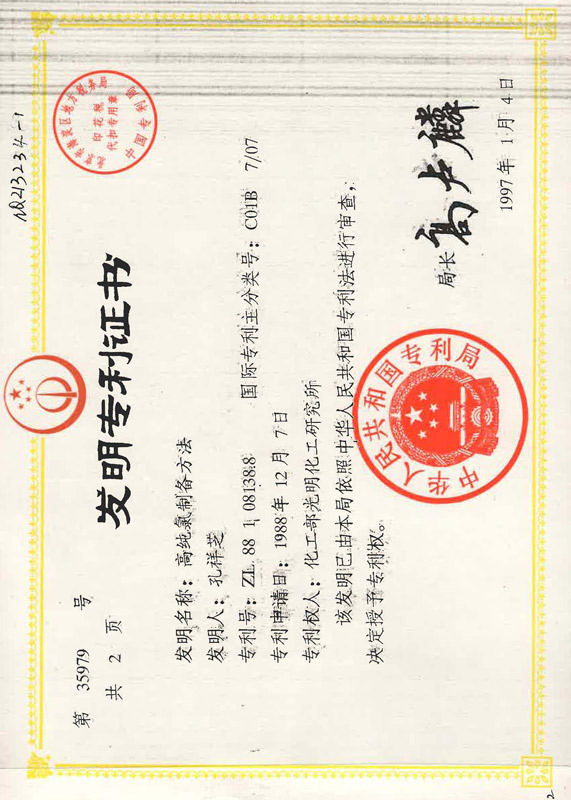 第 35979 号
共 2 页
发明专利证书
印花税
代扣专用章
中国专利局
发明名称：高纯氯制备方法
发明人：孔祥芝
专利号：ZL 88 1 08138.8 国际专利主分类号：C01B 7/07
专利申请日：1988年12月7日
专利权人：化工部光明化工研究所
该发明已由本局依照中华人民共和国专利法进行审查，
决定授予专利权。
中华人民共和国专利局
局长 高卢麟
1997年1月4日
2